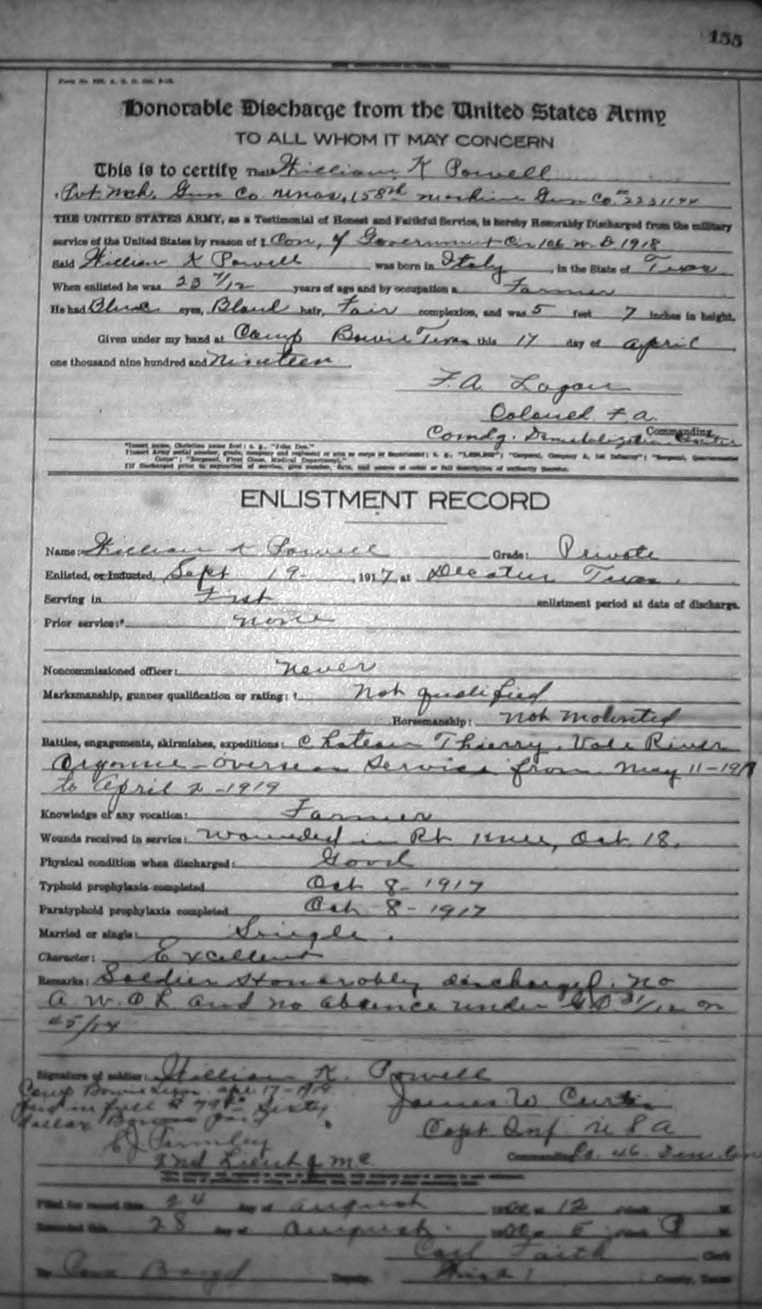 155
Honorable Discharge from the United States Army
TO ALL WHOM IT MAY CONCERN
This is to certify That William K Powell
Pvt Mch. Gun Co. 158th Machine Gun Co
THE UNITED STATES ARMY, as a Testimonial of Honest and Faithful Service, is hereby Honorably Discharged from the military
service of the United States by reason of Con. of Government Cir 106 W. D 1918
Said William K Powell was born in Italy, in the State of Texas
When enlisted he was 23 7/12 years of age and by occupation a Farmer
He had Blue eyes, Blond hair, Fair complexion, and was 5 feet 7 inches in height.
Given under my hand at Camp Bowie Texas this 17 day of april
one thousand nine hundred and Nineteen
F. A. Logan
Colonel F. A.
Commanding
Comdg. Demobilization Center
ENLISTMENT RECORD
Name: William K Powell Grade: Private
Enlisted, or Inducted, Sept 19, 1917, at Decatur Texas.
Serving in First enlistment period at date of discharge.
Prior service:* none
Noncommissioned officer: never
Marksmanship, gunner qualification or rating: † Not qualified
Horsemanship: Not Mounted
Battles, engagements, skirmishes, expeditions: Chateau Thierry, Vale River
Argonne - overseas Service from May 11-191
to April 2 - 1919
Knowledge of any vocation: Farmer
Wounds received in service: Wounded in Rt Knee, Oct. 18.
Physical condition when discharged: Good
Typhoid prophylaxis completed Oct 8 - 1917
Paratyphoid prophylaxis completed Oct - 8 - 1917
Married or single: Single.
Character: Excellent
Remarks: Soldier Honorably discharged. no
A. W. O L and no absence under G.O 31/12 or
45/14
Signature of soldier: William K. Powell
Camp Bowie Texas apr 17-1919
James W Curtis
Paid in full $
Capt Inf U S A
2nd Lieut Q M C
Filed for record this 24 day of august 12
Recorded this 28 day of august 5 P M
Carl Faith Clerk
By Boyd Deputy. County, Texas